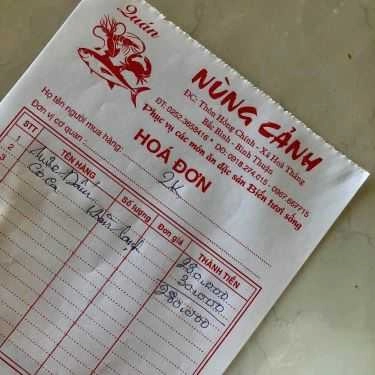 Quán
NÙNG CẢNH
ĐC: Thôn Hồng Chính - Xã Hoà Thắng
Bắc Bình - Bình Thuận
ĐT: 0252.3655415 * DĐ: 0918.274.015 - 0967.667715
Phục vụ các món ăn đặc sản Biển tươi sống
HOÁ ĐƠN
Họ tên người mua hàng:
Đơn vị cơ quan :
STT TÊN HÀNG Số lượng Đơn giá THÀNH TIỀN
1
2 Khăn lạnh
3
280.000